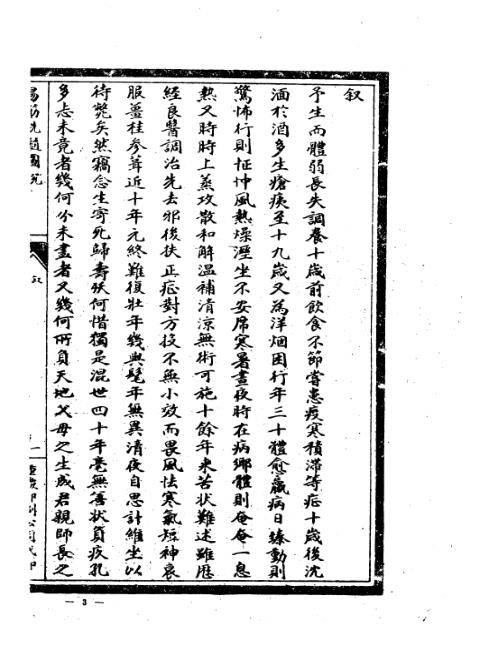 叙
予生而體弱長失調養十歲前飲食不節嘗患疫寒積滯等症十歲後沈
湎於酒多生瘡痍至十九歲又為洋烟困行年三十體愈羸病日臻動則
驚怖行則怔忡風熱燥溼坐不安席寒暑晝夜時在病鄉體則奄奄一息
熱又時時上蒸攻散和解温補清涼無術可施十餘年來苦狀難述雖歷
經良醫調治先去邪後扶正症對方投不無小效而畏風怯寒氣短神衰
服薑桂參茸近十年元終難復壯年幾與髦年無異清夜自思計維坐以
待斃矣然竊念生寄死歸壽殀何惜獨是混世四十年毫無善狀負疚孔
多忐未竟者幾何分未盡者又幾何所負天地父母之生成君親師長之
易筋洗髓圖說
叙
一
印刷公司代印
— 3 —